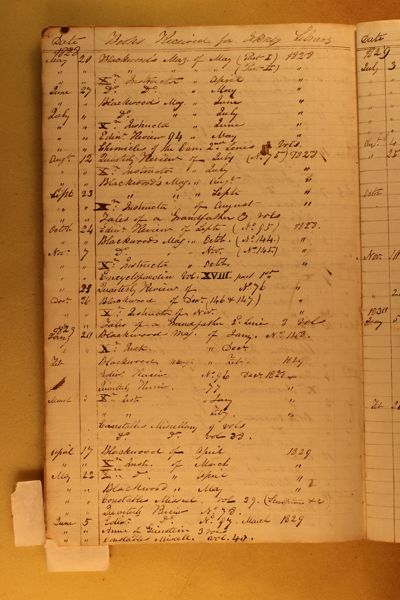 Date Books Received for Library
1828
May 20 Blackwoods Mag. of May (Part I) 1828
" " " " " (Part II)
" " Xn Instructor April "
June 27 Do Do " May "
" " Blackwoods Mag " June "
July " Do " July "
" " Xn Instructor " June "
" " Edinr Review 94 " May "
" " Chronicles of the Can 2nd Series Vols.
Augt 12 Quarterly Review of July (No 75) 1828
" " Xn Instructor " July "
" " Blackwoods Mag. " Augt "
Septr 23 " " Septr "
" " Xn Instructor of August "
" " Tales of a Grandfather 3 vols
Octr 24 Edinr Review of Septr (No 95) 1828
" " Blackwoods Mag. " Octr. (No 144.)
Novr 7 Do " Nov. (No 145)
" " Xn Instructor " Octr "
" " Encyclopædia Vol. XVIII part 1st
" 28 Quarterly Review of No 76 "
Decr 26 Blackwood of Decr 146 & 147)
" " X. Instructor for Nov. "
" " Tales of a Grandfather 2d Series 3 Vol
1829
Jany 20 Blackwood Mag. of Jany. No 148.
" Xn Instr. " Decr
Feb Blackwood mag. " Feb. 1829
Edinr Review No 96 Decr 1828
Quarterly Review 77 "
March Xn Instr. " Jany "
" " Feby. "
Constables Miscellany vols
Do Do vol 33.
April 17 Blackwood of April 1829
" " Xn Instr. of March "
May 22 " April "
" " Blackwood " May "
" " Constables Miscel vol 39.
" " Quarterly Review No 78.
June 5 Edinr Do. No 97. March 1829
" " Anne of Geierstein 3 vols
" " Constables Miscell. vol. 40.
Date
1829
July 3
Augt 4
" 25
Octr
Nov. 10
1830
Jany 5
Feb 2